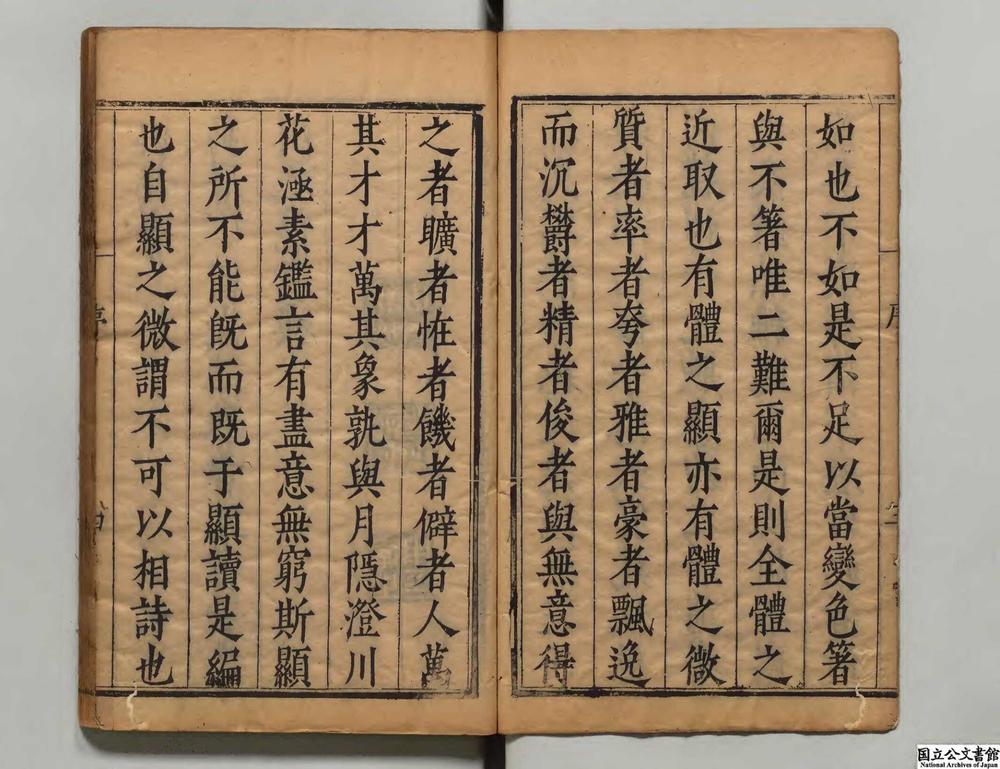 如也不如是不足以當變色箸
與不箸唯二難爾是則全體之
近取也有體之顯亦有體之微
質者率者夸者雅者豪者飄逸
而沉鬱者精者俊者與無意得
之者曠者恠者饑者僻者人萬
其才才萬其象孰與月隱澄川
花涵素鑑言有盡意無窮斯顯
之所不能旣而既于顯讀是編
也自顯之微謂不可以相詩也
国立公文書館
National Archives of Japan